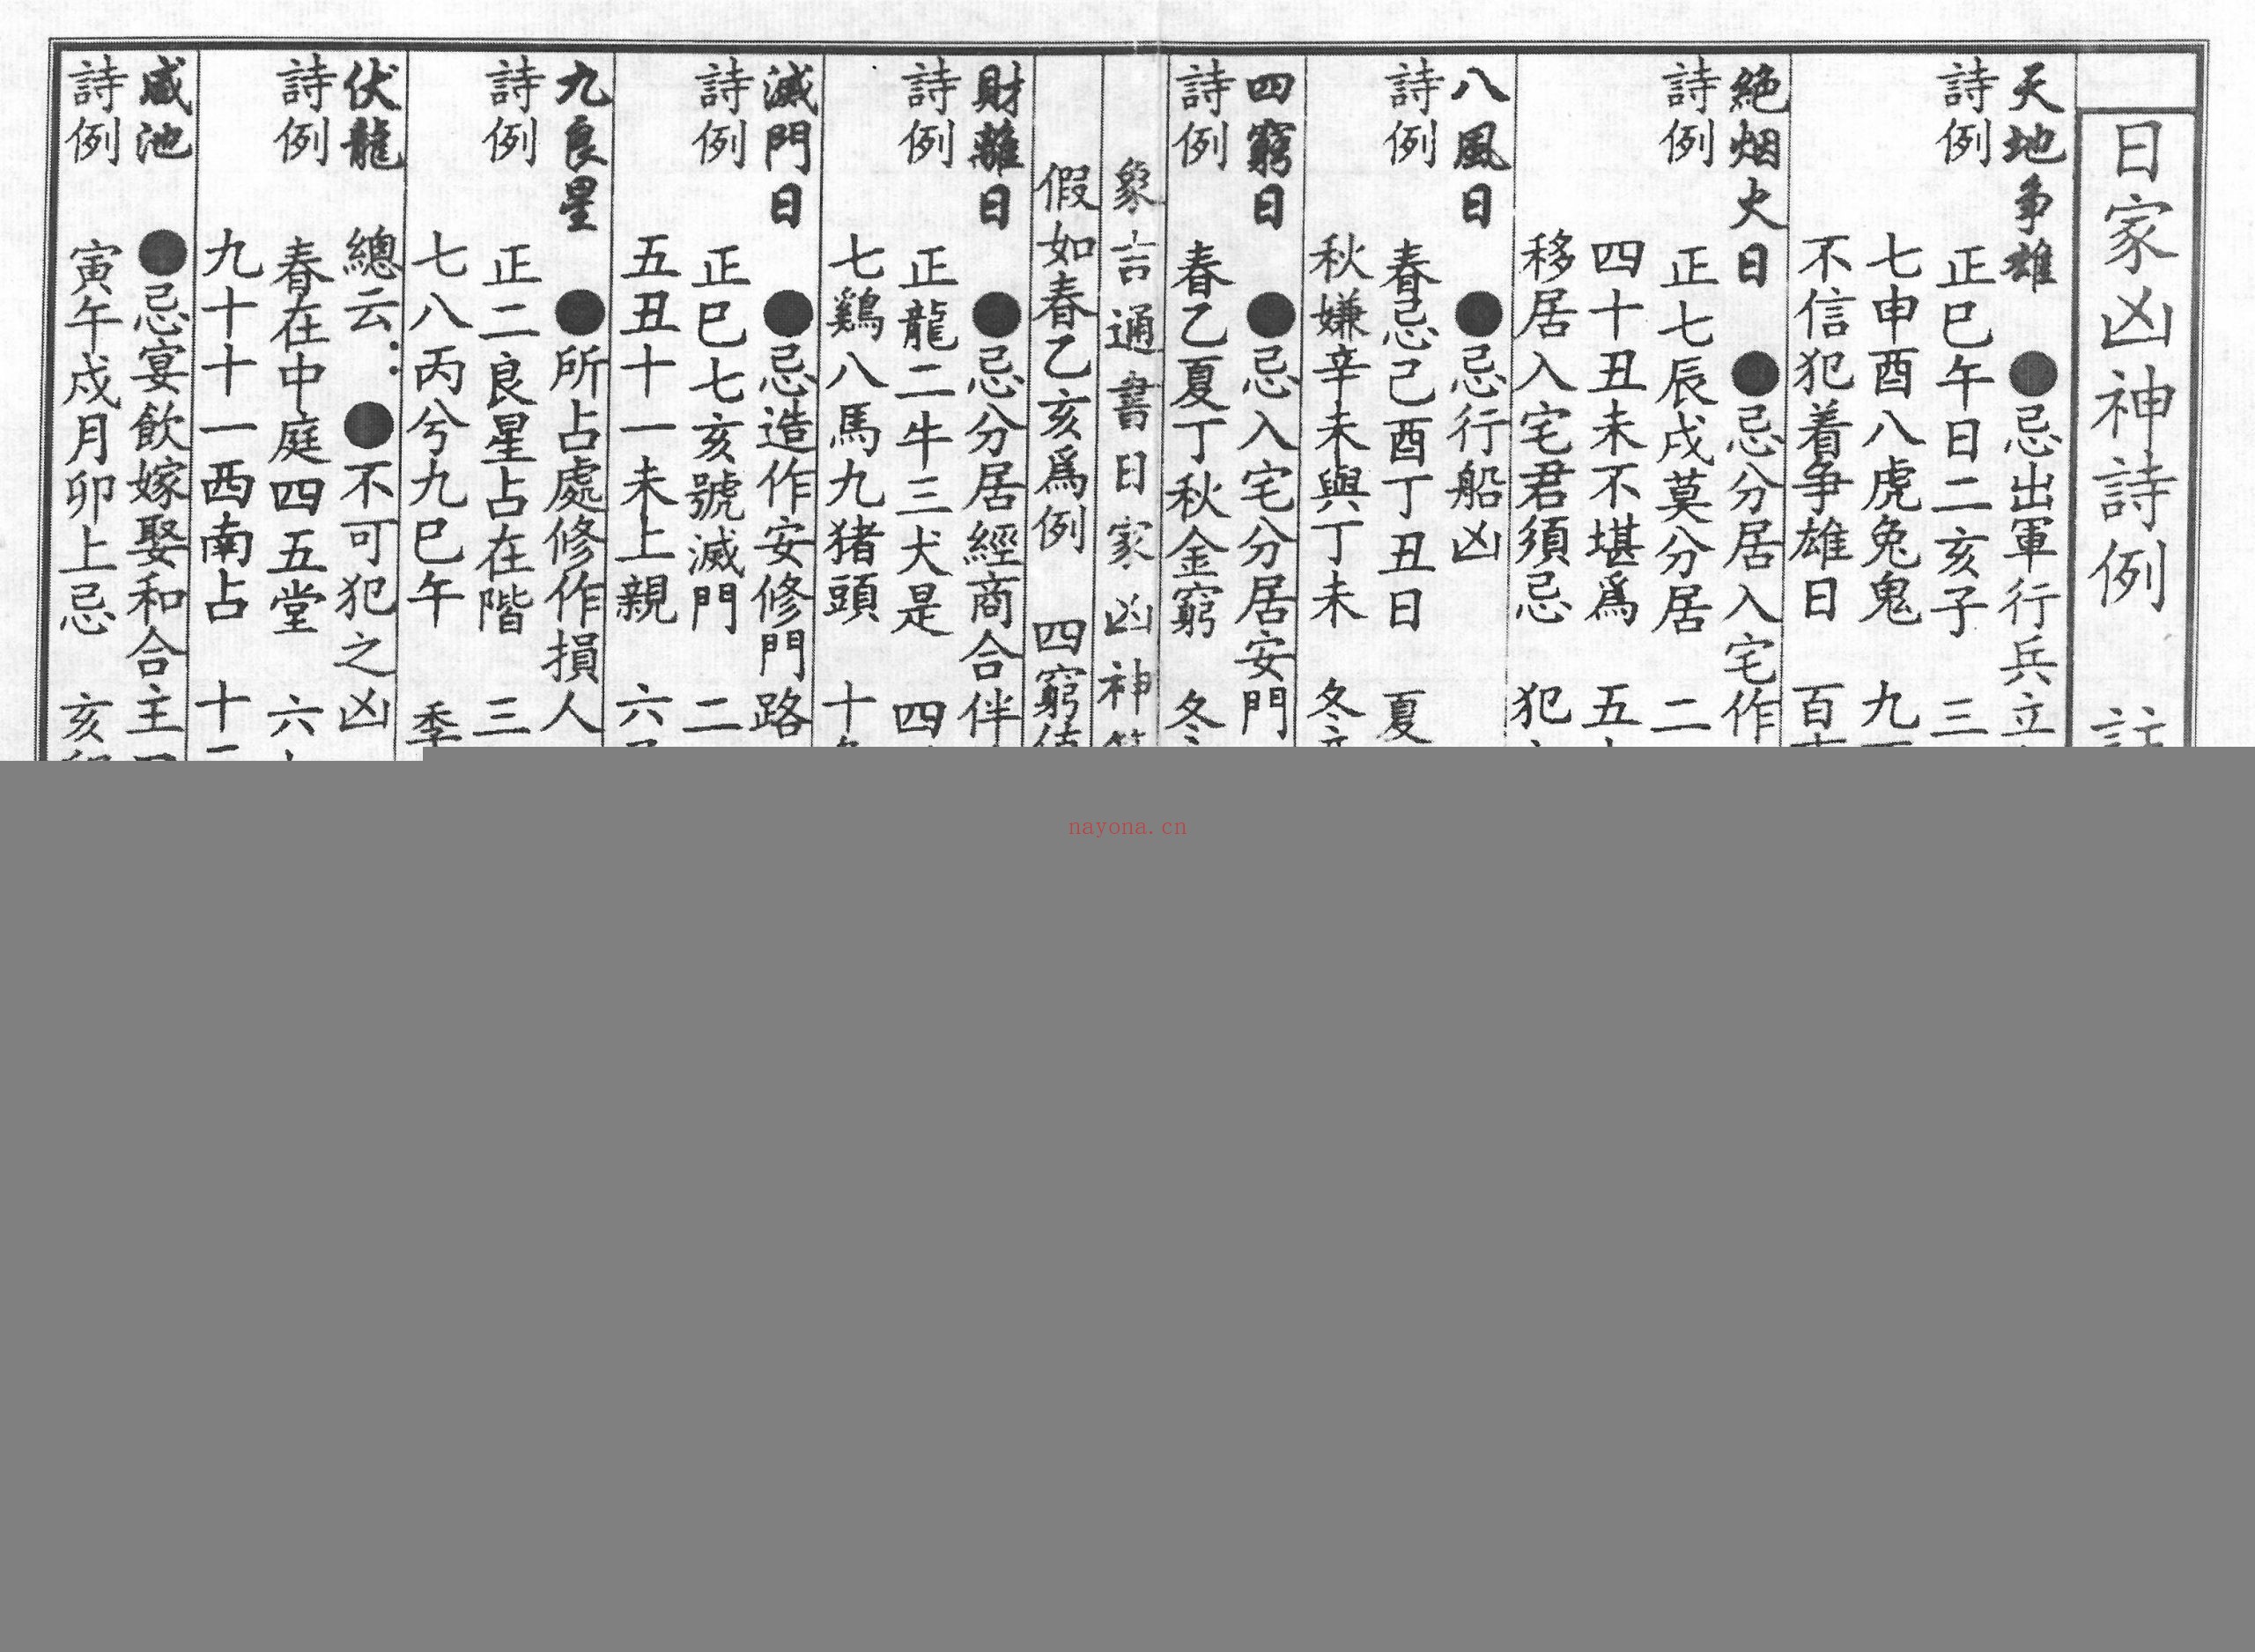 日家凶神詩例
天地争雄 ●忌出軍行兵立
詩例 正巳午日二亥子 三
七申酉八虎兔鬼 九
不信犯着争雄日 百
絶烟火日 ●忌分居入宅作
詩例 正七辰戌莫分居 二
四十丑未不堪爲 五
移居入宅君須忌 犯
八風日 ●忌行船凶
詩例 春忌己酉丁丑日 夏
秋嫌辛未與丁未 冬
四窮日 ●忌入宅分居安門
詩例 春乙夏丁秋金窮 冬
象吉通書日家凶神
假如春乙亥爲例 四窮
財離日 ●忌分居經商合伴
詩例 正龍二牛三犬是 四
七鷄八馬九猪頭 十
滅門日 ●忌造作安修門路
詩例 正巳七亥號滅門 二
五丑十一未上親 六
九良星 ●所占處修作損人
詩例 正二良星占在階 三
七八丙兮九巳午 季
伏龍 總云：●不可犯之凶
詩例 春在中庭四五堂 六
九十十一西南占 十
咸池 ●忌宴飲嫁娶和合主
詩例 寅午戌月卯上忌 亥
nayona.cn